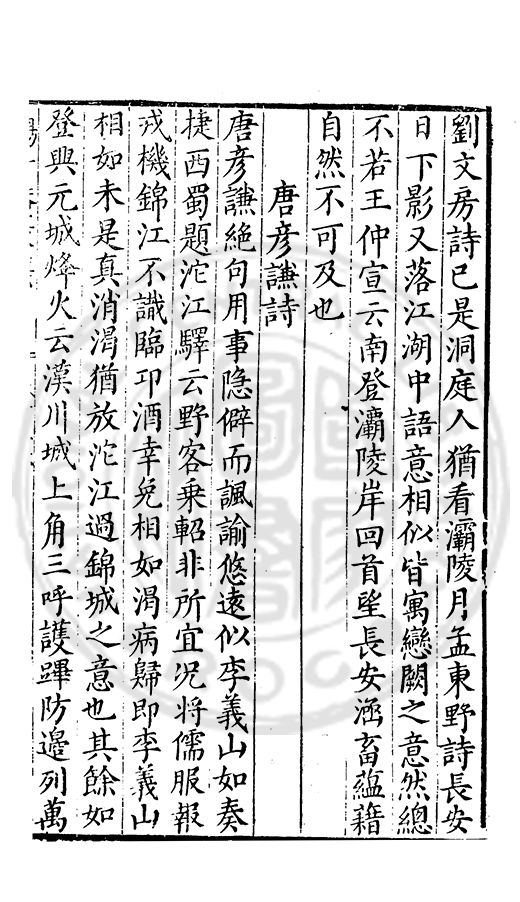 劉文房詩已是洞庭人猶看灞陵月孟東野詩長安
日下影又落江湖中語意相似皆寓戀闕之意然總
不若王仲宣云南登灞陵岸回首望長安涵畜蘊藉
自然不可及也
唐彥謙詩
唐彥謙絶句用事隐僻而諷諭悠遠似李義山如奏
捷西蜀題沱江驛云野客乗軺非所宜况將儒服報
戎機錦江不識臨卭酒幸免相如渴病歸即李義山
相如未是真消渴猶放沱江過錦城之意也其餘如
登興元城烽火云漢川城上角三呼護蹕防邉列萬